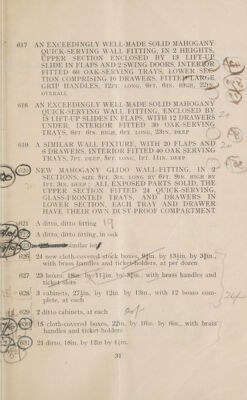 617 AN EXCEEDINGLY WELL-MADE SOLID MAHOGANY
QUICK-SERVING WALL FITTING, IN 2 HEIGHTS,
UPPER SECTION ENCLOSED BY 13 LIFT-UP
SLIDE IN FLAPS AND 2 SWING DOORS, INTERIOR
FITTED 60 OAK-SERVING TRAYS, LOWER SEC-
TION COMPRISING 10 DRAWERS, FITTED LARGE
GRIP HANDLES, 12FT. LONG, 6FT. 6IN. HIGH, 22IN.
OVERALL
618 AN EXCEEDINGLY WELL-MADE SOLID MAHOGANY
QUICK-SERVING WALL FITTING, ENCLOSED BY
15 LIFT-UP SLIDES IN FLAPS, WITH 12 DRAWERS
UNDER, INTERIOR FITTED 30 OAK-SERVING
TRAYS, 6FT 6IN. HIGH, 6FT. LONG, 23IN. DEEP
619 A SIMILAR WALL FIXTURE, WITH 20 FLAPS AND
8 DRAWERS, INTERIOR FITTED 40 OAK SERVING
TRAYS, 7FT. DEEP, 8FT. LONG, 1FT. 11IN. DEEP
620 NEW MAHOGANY GLOVE WALL-FITTING, IN 2
SECTIONS, SIZE 8FT. 3IN. LONG BY 6FT. 9IN. HIGH BY
1FT. 3IN. DEEP; ALL EXPOSED PARTS SOLID, THE
UPPER SECTION FITTED 24 QUICK-SERVING,
GLASS-FRONTED TRAYS, AND DRAWERS IN
LOWER SECTION. EACH TRAY AND DRAWER
HAVE THEIR OWN DUST-PROOF COMPARTMENT
621 A ditto, ditto fitting
A ditto, ditto fitting, in oak
similar lot
626 24 new cloth-covered stock boxes, by 13½in. by 3½in.,
with brass handles and ticket-holders, at per dozen
627 23 boxes, by 11½in. by with brass handles and
ticket slots
628 3 cabinets, 27½in. by 12in. by 13in., with 12 boxes com-
plete, at each
629 2 ditto cabinets, at each
630 15 cloth-covered boxes, 22in. by 16in. by 6in., with brass
handles and ticket-holders
631 21 ditto, 18in. by 12in by 4½in.
31